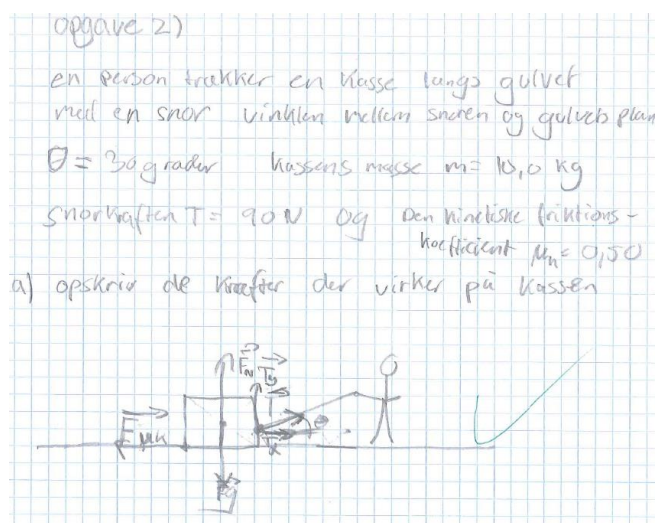 opgave 2)
en person trækker en kasse langs gulvet
med en snor vinklen mellem snoren og gulvets plan
θ = 30 grader kassens masse m = 10,0 kg
snorkraften T = 90 N og Den kinetiske friktions-
koefficient μk = 0,50
a) opskriv de kræfter der virker på kassen
FN Ty
T
θ
Fμk Tx
Fg